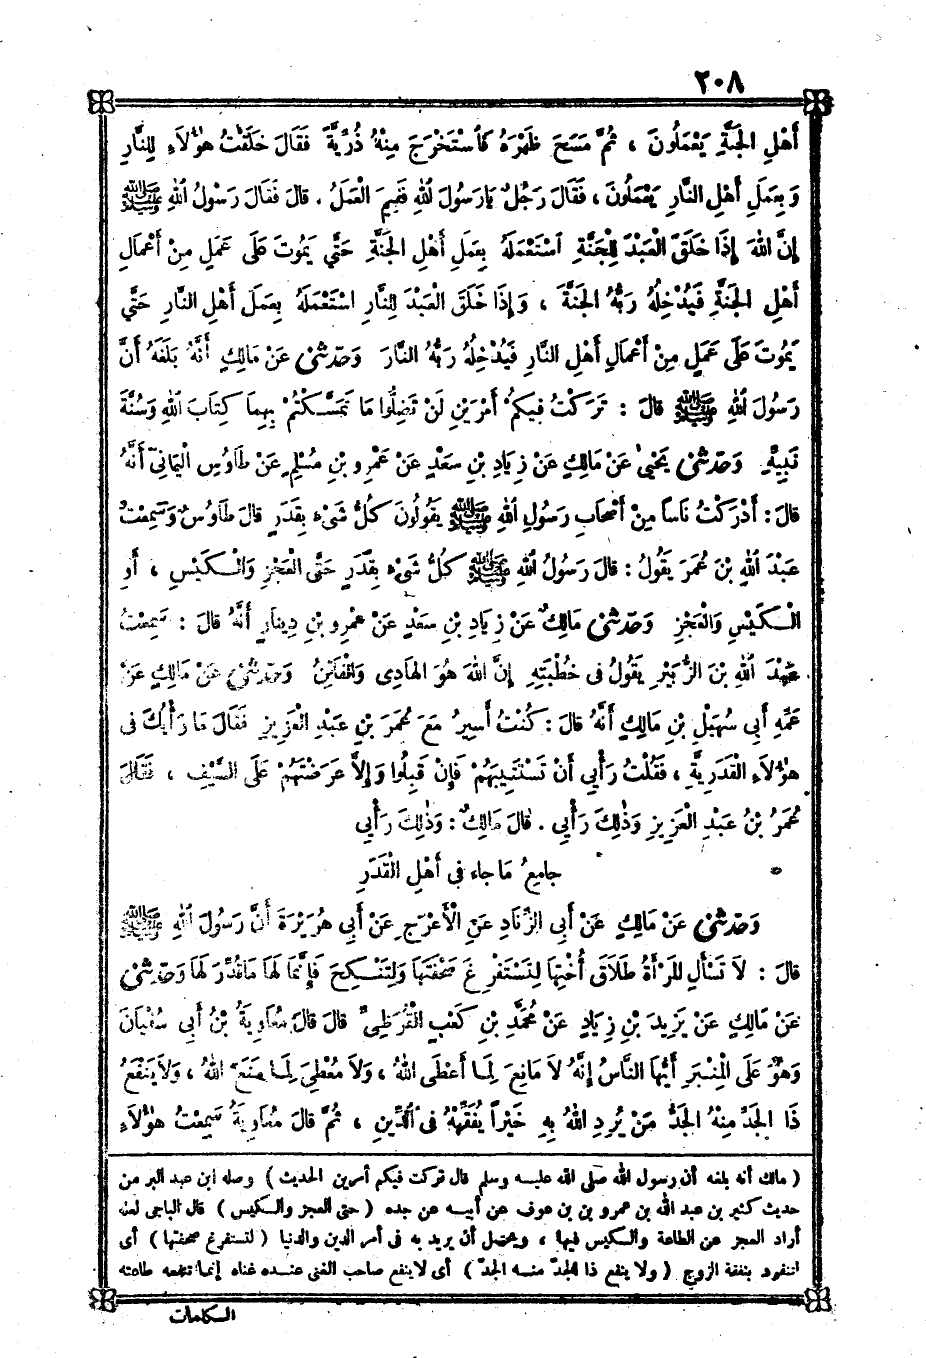 ٢٠٨
أَهْلِ الجَنَّةِ يَعْمَلُونَ ، ثُمَّ مَسَحَ ظَهْرَهُ فَاسْتَخْرَجَ مِنْهُ ذُرِّيَّةً فَقَالَ خَلَقْتُ هٰؤُلَاءِ لِلنَّارِ
وَبِعَمَلِ أَهْلِ النَّارِ يَعْمَلُونَ ، فَقَالَ رَجُلٌ يَارَسُولَ اللهِ فَفِيمَ الْعَمَلُ . قالَ فَقَالَ رَسُولُ اللهِ ﷺ
إِنَّ اللهَ إِذَا خَلَقَ الْعَبْدَ لِلْجَنَّةِ اسْتَعْمَلَهُ بِعَمَلِ أَهْلِ الجَنَّةِ حَتَّى يَمُوتَ عَلَى عَمَلٍ مِنْ أَعْمَالِ
أَهْلِ الجَنَّةِ فَيُدْخِلُهُ رَبُّهُ الجَنَّةَ ، وَإِذَا خَلَقَ الْعَبْدَ لِلنَّارِ اسْتَعْمَلَهُ بِعَمَلِ أَهْلِ النَّارِ حَتَّى
يَمُوتَ عَلَى عَمَلٍ مِنْ أَعْمَالِ أَهْلِ النَّارِ فَيُدْخِلُهُ رَبُّهُ النَّارَ وَحَدَّثَنِي عَنْ مَالِكٍ أَنَّهُ بَلَغَهُ أَنَّ
رَسُولَ اللهِ ﷺ قالَ : تَرَكْتُ فِيكُمْ أَمْرَيْنِ لَنْ تَضِلُّوا مَا تَمَسَّكْتُمْ بِهِمَا كِتَابَ اللهِ وَسُنَّةَ
نَبِيِّهِ وَحَدَّثَنِي يَحْيٰى عَنْ مَالِكٍ عَنْ زِيَادِ بْنِ سَعْدٍ عَنْ عَمْرِو بْنِ مُسْلِمٍ عَنْ طَاوُسٍ الْيَمَانِيِّ أَنَّهُ
قالَ : أَدْرَكْتُ نَاسًا مِنْ أَصْحَابِ رَسُولِ اللهِ ﷺ يَقُولُونَ كُلُّ شَىْءٍ بِقَدَرٍ قالَ طَاوُسٌ وَسَمِعْتُ
عَبْدَ اللهِ بْنَ عُمَرَ يَقُولُ : قالَ رَسُولُ اللهِ ﷺ كُلُّ شَىْءٍ بِقَدَرٍ حَتَّى الْعَجْزِ وَالْكَيْسِ ، أَوِ
الْكَيْسِ وَالْعَجْزِ وَحَدَّثَنِي مَالِكٌ عَنْ زِيَادِ بْنِ سَعْدٍ عَنْ عَمْرِو بْنِ دِينَارٍ أَنَّهُ قالَ : سَمِعْتُ
عَبْدَ اللهِ بْنَ الزُّبَيْرِ يَقُولُ فى خُطْبَتِهِ إِنَّ اللهَ هُوَ الهَادِى وَالْفَاتِنُ وَحَدَّثَنِي عَنْ مَالِكٍ عَنْ
عَمِّهِ أَبِى سُهَيْلِ بْنِ مَالِكٍ أَنَّهُ قالَ : كُنْتُ أَسِيرُ مَعَ عُمَرَ بْنِ عَبْدِ الْعَزِيزِ فَقَالَ مَا رَأْيُكَ فى
هٰؤُلَاءِ الْقَدَرِيَّةِ ، فَقُلْتُ رَأْيِي أَنْ تَسْتَتِيبَهُمْ فَإِنْ قَبِلُوا وَإِلَّا عَرَضْتَهُمْ عَلَى السَّيْفِ ، فَقَالَ
عُمَرُ بْنُ عَبْدِ الْعَزِيزِ وَذٰلِكَ رَأْيِي . قالَ مَالِكٌ : وَذٰلِكَ رَأْيِي
جامِعُ مَا جاءَ فى أَهْلِ الْقَدَرِ
وَحَدَّثَنِي عَنْ مَالِكٍ عَنْ أَبِى الزِّنَادِ عَنِ الْأَعْرَجِ عَنْ أَبِى هُرَيْرَةَ أَنَّ رَسُولَ اللهِ ﷺ
قالَ : لَا تَسْأَلِ المَرْأَةُ طَلَاقَ أُخْتِهَا لِتَسْتَفْرِغَ صَحْفَتَهَا وَلِتَنْكِحَ فَإِنَّمَا لَهَا مَاقُدِّرَ لَهَا وَحَدَّثَنِي
عَنْ مَالِكٍ عَنْ يَزِيدَ بْنِ زِيَادٍ عَنْ مُحَمَّدِ بْنِ كَعْبٍ الْقُرَظِىِّ قالَ قالَ مُعَاوِيَةُ بْنُ أَبِى سُفْيَانَ
وَهُوَ عَلَى الْمِنْبَرِ أَيُّهَا النَّاسُ إِنَّهُ لَا مَانِعَ لِمَا أَعْطَى اللهُ ، وَلَا مُعْطِىَ لِمَا مَنَعَ اللهُ ، وَلَا يَنْفَعُ
ذَا الجَدِّ مِنْهُ الجَدُّ مَنْ يُرِدِ اللهُ بِهِ خَيْرًا يُفَقِّهْهُ فى الدِّينِ ، ثُمَّ قالَ مُعَاوِيَةُ سَمِعْتُ هٰؤُلَاءِ
( مالك أنه بلغه أن رسول الله صلى الله عليه وسلم قال تركت فيكم أمرين الحديث ) وصله ابن عبد البر من
حديث كثير بن عبد الله بن عمرو بن بن عوف عن أبيه عن جده ( حتى العجز والكيس ) قال الباجى لعله
أراد العجز عن الطاعة والكيس فيها ، ويحتمل أن يريد به فى أمر الدين والدنيا ( لتستفرغ صحفتها ) أى
لتنفرد بنفقة الزوج ( ولا ينفع ذا الجدّ منه الجدّ ) أى لاينفع صاحب الغنى عنده غناه إنما تنفعه طاعته
الكلمات